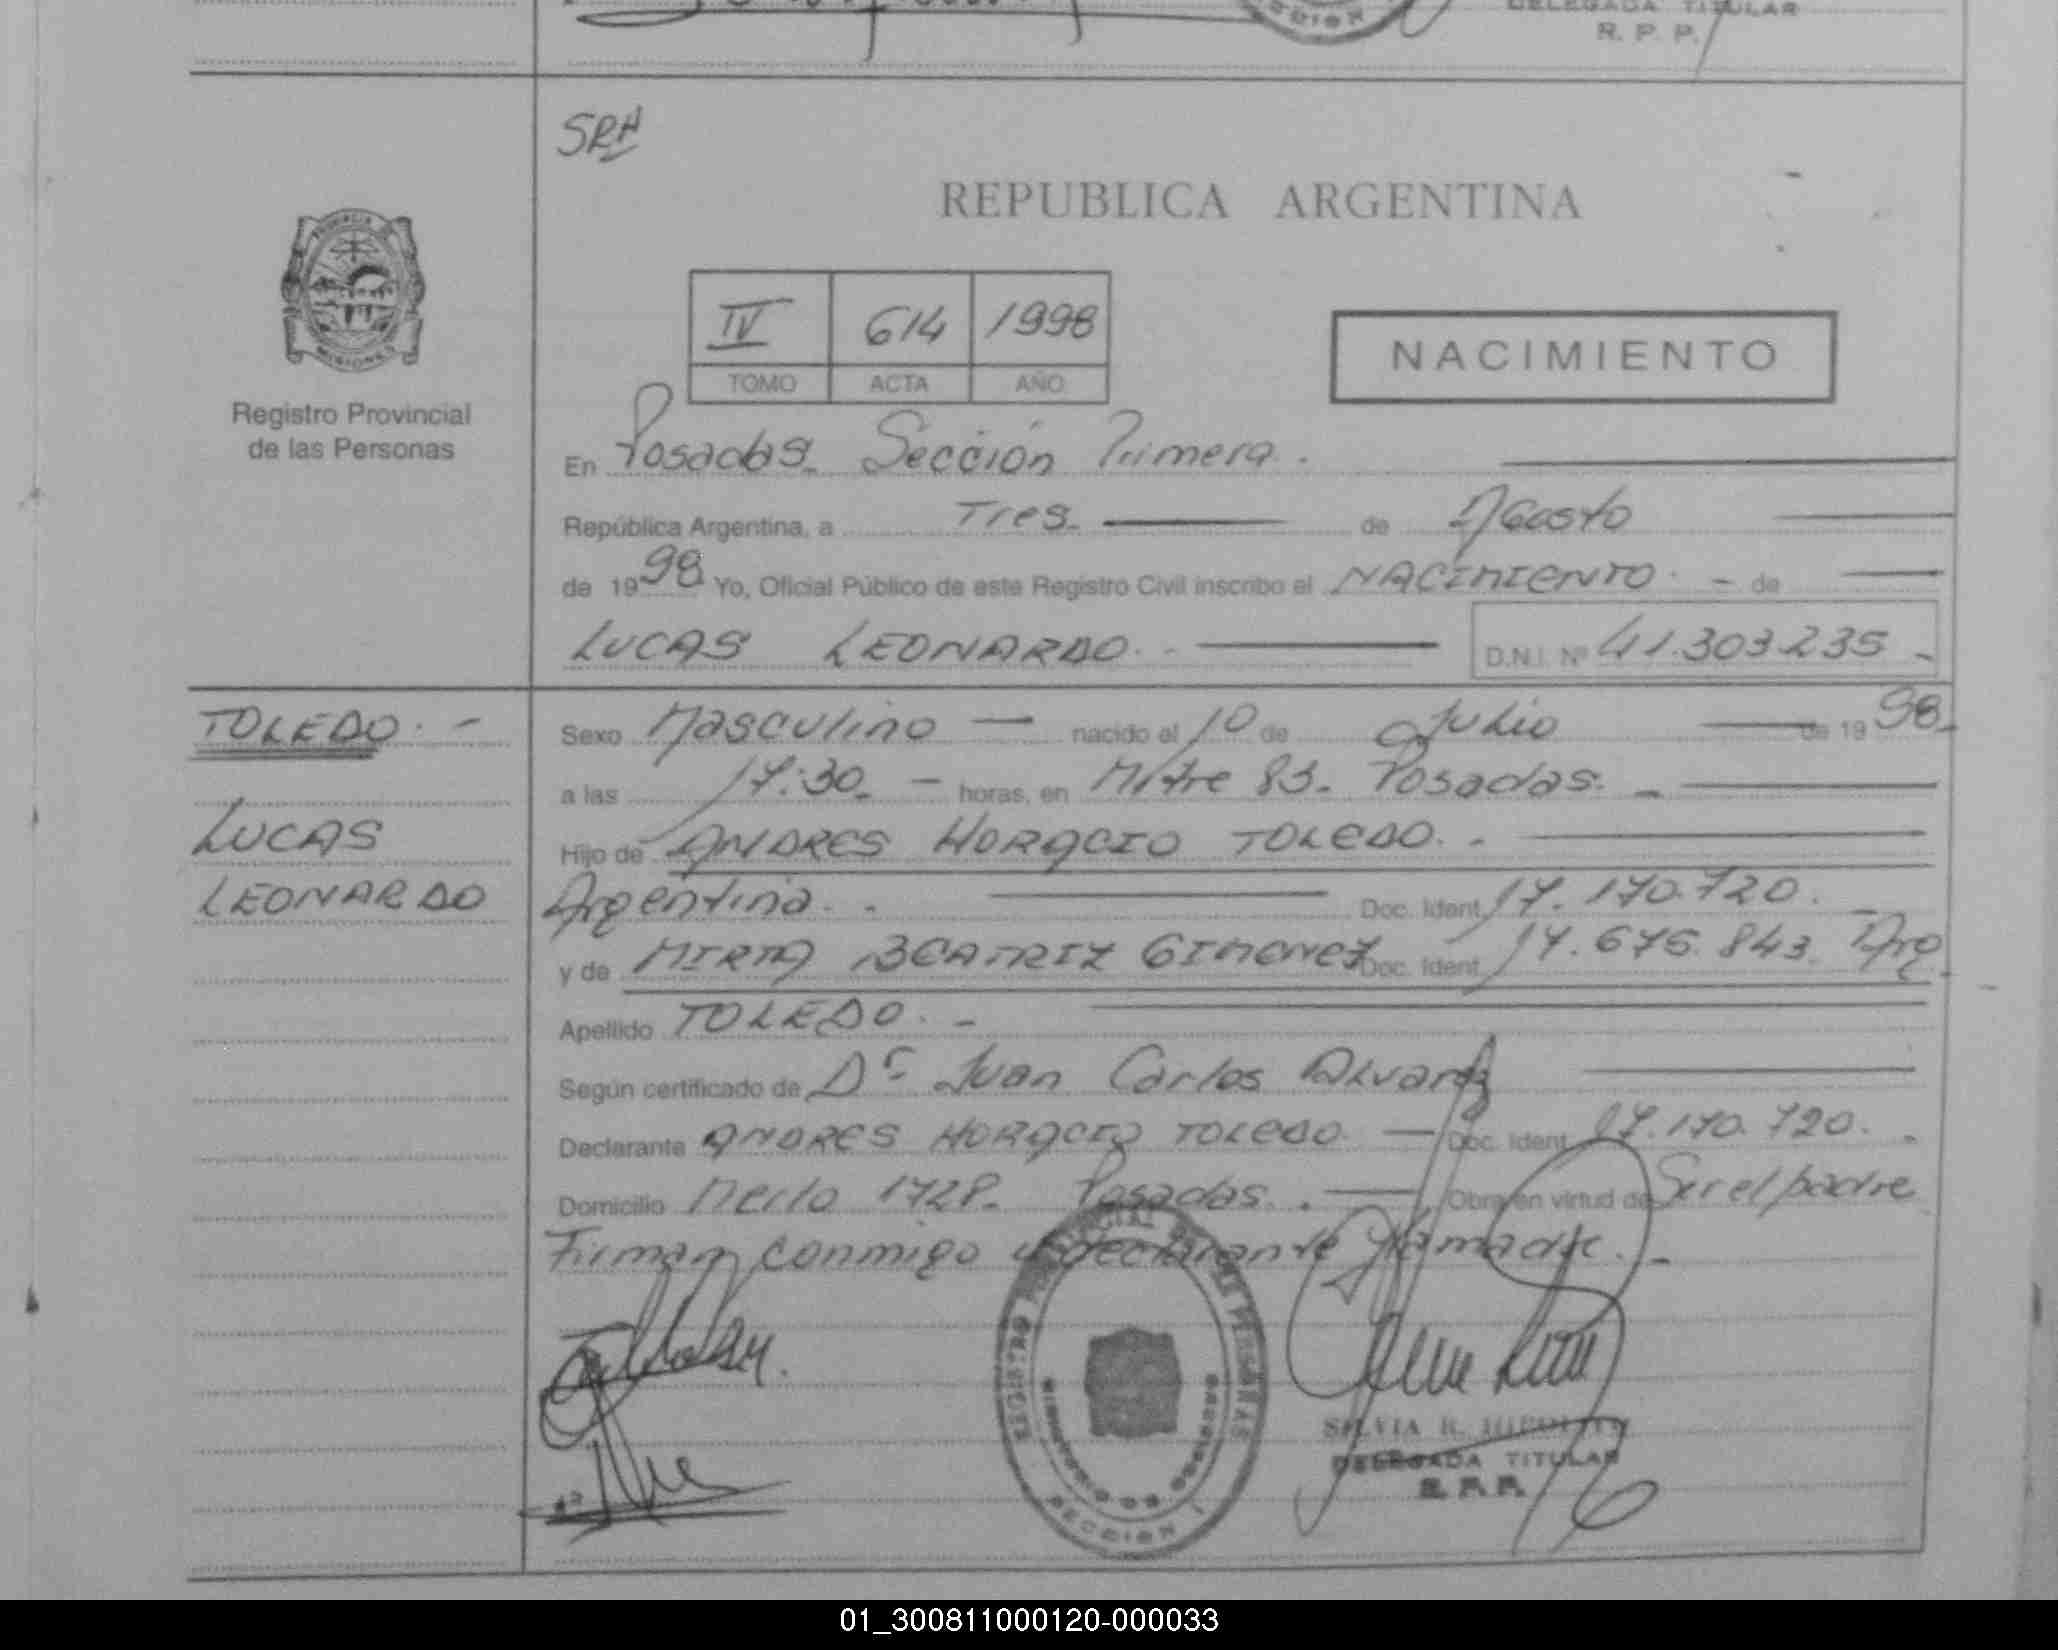 DELEGADA TITULAR
R. P. P.
SRH
REPUBLICA ARGENTINA
PROVINCIA DE
MISIONES
Registro Provincial
de las Personas
IV 614 1998
TOMO ACTA AÑO
NACIMIENTO
En Posadas. Sección Primera.
República Argentina, a Tres. de Agosto
de 1998 Yo, Oficial Público de este Registro Civil inscribo el NACIMIENTO. - de
LUCAS LEONARDO. - D.N.I. Nº 41.303.235 -
TOLEDO. -
LUCAS
LEONARDO
Sexo Masculino - nacido el 10 de Julio de 1998.
a las 17:30. - horas, en Mitre 83. Posadas. -
Hijo de ANDRES HORACIO TOLEDO. -
Argentina. - Doc. Ident. 17.170.720.
y de MIRTA BEATRIZ GIMENEZ Doc. Ident. 17.675.843. Arg.
Apellido TOLEDO. -
Según certificado de Dr Juan Carlos Alvarez
Declarante ANDRES HORACIO TOLEDO. - Doc. Ident. 17.170.720. -
Domicilio 1728. Posadas. - Obra en virtud de Ser el padre
Firman conmigo el declarante y la madre. -
REGISTRO PROVINCIAL DE LAS PERSONAS
SECCION I
SILVIA R. HIPOLITO
DELEGADA TITULAR
R. P. P.
01_300811000120-000033